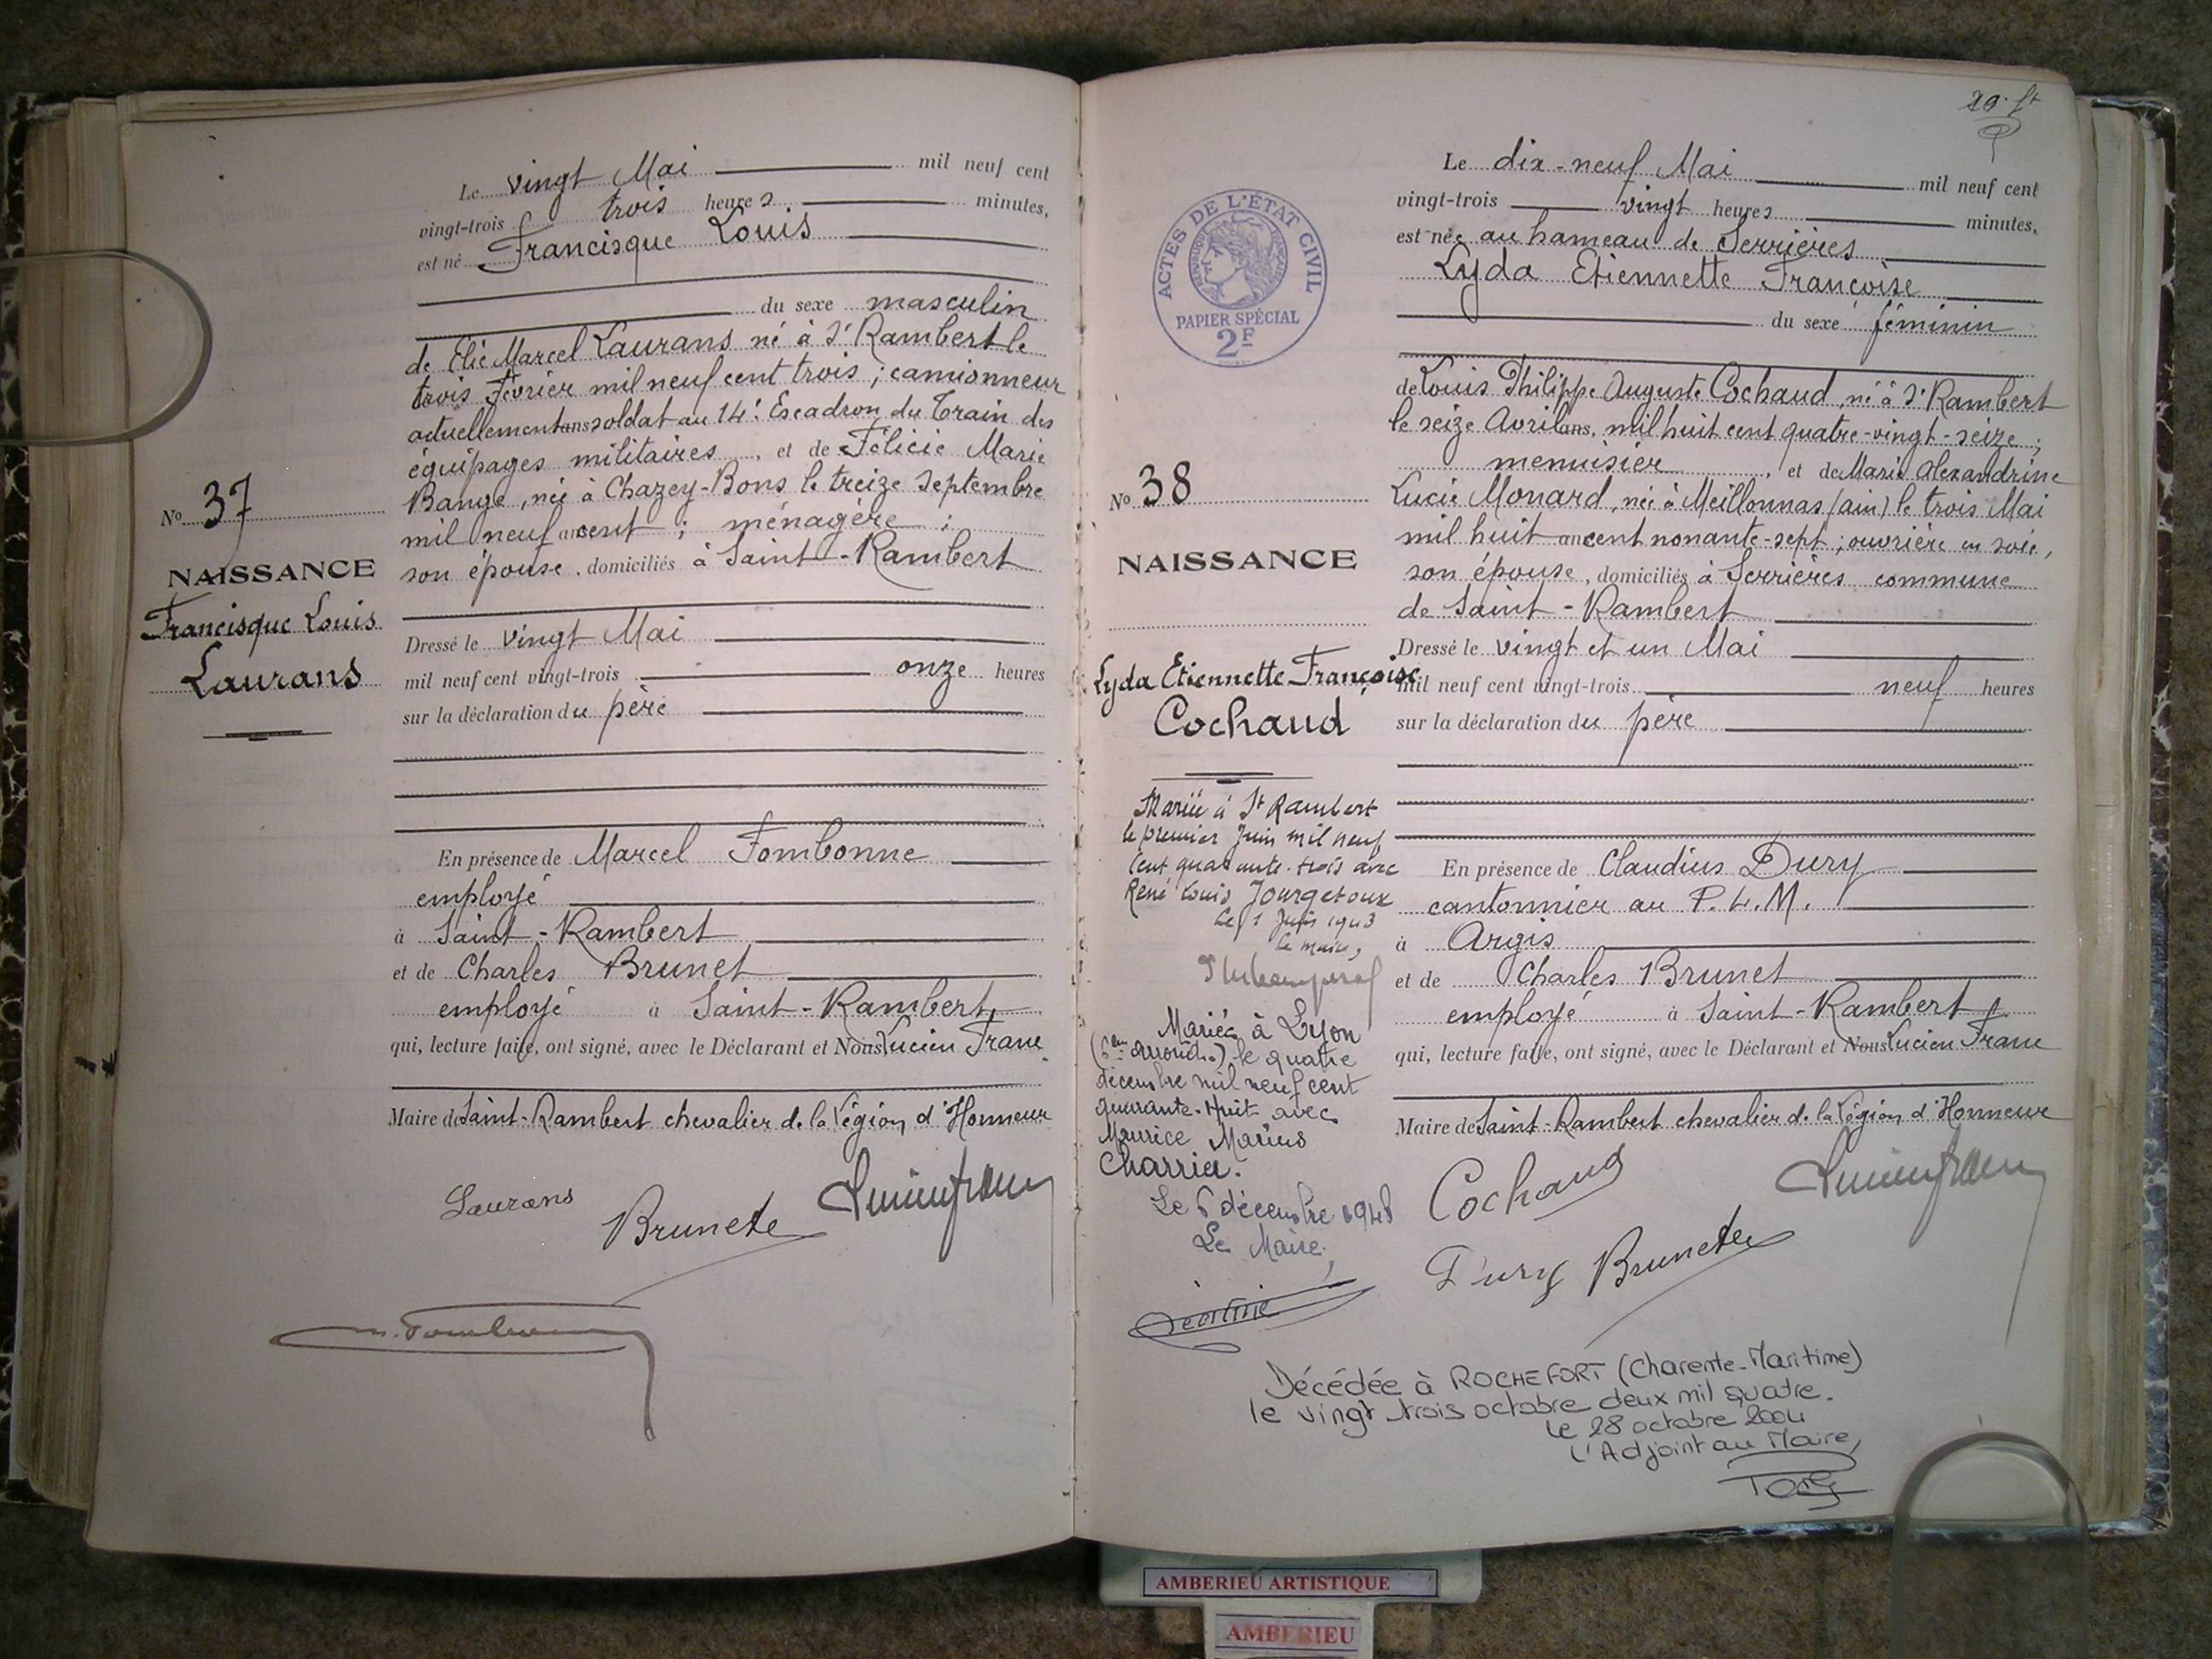 Le vingt Mai mil neuf cent
vingt-trois trois heures minutes,
est né Francisque Louis
du sexe masculin
de Elie Marcel Laurans né à St Rambert le
trois Février mil neuf cent trois ; camionneur
actuellement ans soldat au 14e Escadron du Train des
équipages militaires, et de Félicie Marie
Bange, née à Chazey-Bons le treize Septembre
mil neuf ans cent ; ménagère ;
son épouse, domiciliés à Saint-Rambert
No 37
NAISSANCE
Francisque Louis
Laurans
Dressé le vingt Mai
mil neuf cent vingt-trois onze heures
sur la déclaration du père
En présence de Marcel Fombonne
employé
à Saint-Rambert
et de Charles Brunet
employé à Saint-Rambert
qui, lecture faite, ont signé, avec le Déclarant et Nous Lucien Franc
Maire de Saint-Rambert chevalier de la Légion d'Honneur
Laurans
Brunet
Lucien Franc
ACTES DE L'ÉTAT CIVIL
PAPIER SPÉCIAL
2F
Le dix-neuf Mai mil neuf cent
vingt-trois vingt heures minutes,
est née au hameau de Serrières
Lyda Etiennette Françoise
du sexe féminin
de Louis Philippe Auguste Cochaud, né à St Rambert
le seize Avril ans, mil huit cent quatre-vingt-seize ;
menuisier, et de Marie Alexandrine
Lucie Monard, née à Meillonnas (ain) le trois Mai
mil huit ans cent nonante-sept ; ouvrière en soie,
son épouse, domiciliés à Serrières commune
de Saint-Rambert
No 38
NAISSANCE
Lyda Etiennette Françoise
Cochaud
Dressé le vingt et un Mai
mil neuf cent vingt-trois neuf heures
sur la déclaration du père
En présence de Claudius Dury
cantonnier au P.L.M.
à Argis
et de Charles Brunet
employé à Saint-Rambert
qui, lecture faite, ont signé, avec le Déclarant et Nous Lucien Franc
Maire de Saint-Rambert chevalier de la Légion d'Honneur
Mariée à St Rambert
le premier Juin mil neuf
cent quarante-trois avec
René Louis
Le 1 Juin 1943
Le maire,
Mariée à Lyon
(6ème arrondt), le quatre
décembre mil neuf cent
quarante-huit avec
Maurice Marius
Charrier.
Le 6 décembre 1948
Le Maire,
Cochaud
Lucien Franc
Dury Brunet
Décédée à ROCHEFORT (Charente-Maritime)
le vingt trois octobre deux mil quatre.
Le 28 octobre 2004
L'Adjoint au Maire,
AMBERIEU ARTISTIQUE
AMBERIEU